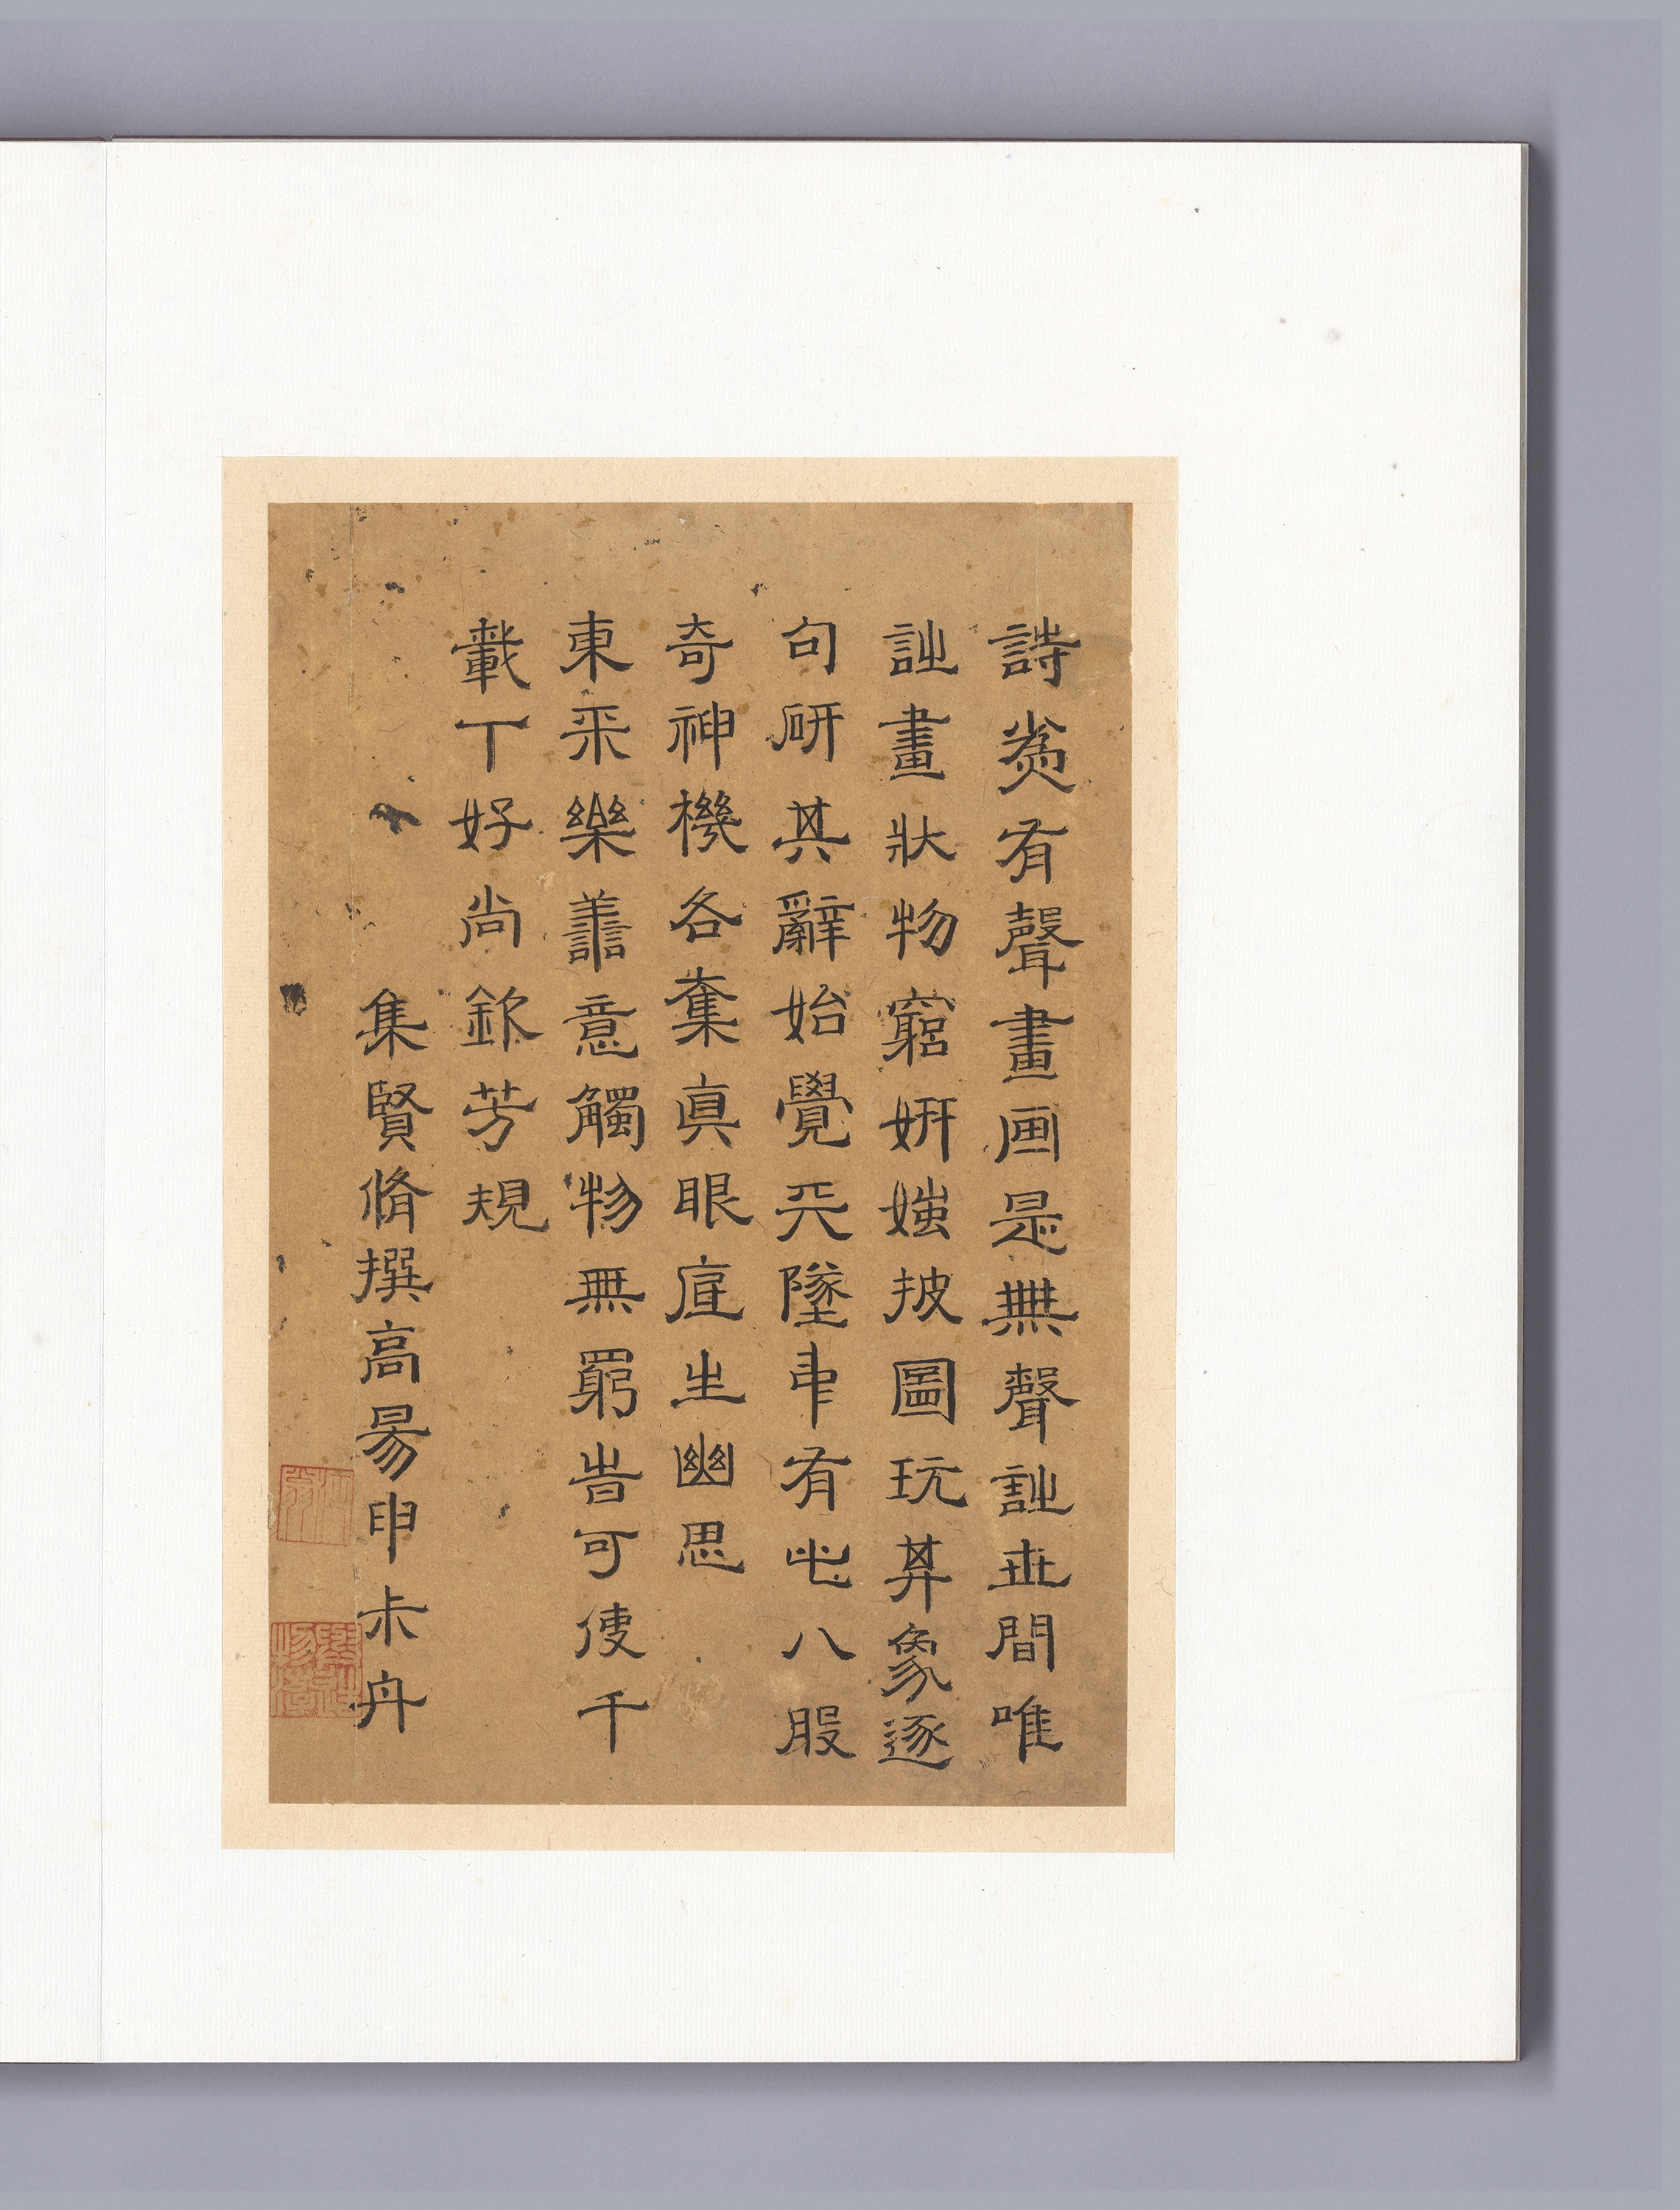 詩為有聲畫画是無聲詩世間唯
詩畫狀物窮妍媸披圖玩其象逐
句研其辭始覺天墬中有此八段
奇神機各奪真眼底生幽思
東平樂善意觸物無窮時可使千
載丅好尚欽芳規
集賢脩撰高昜